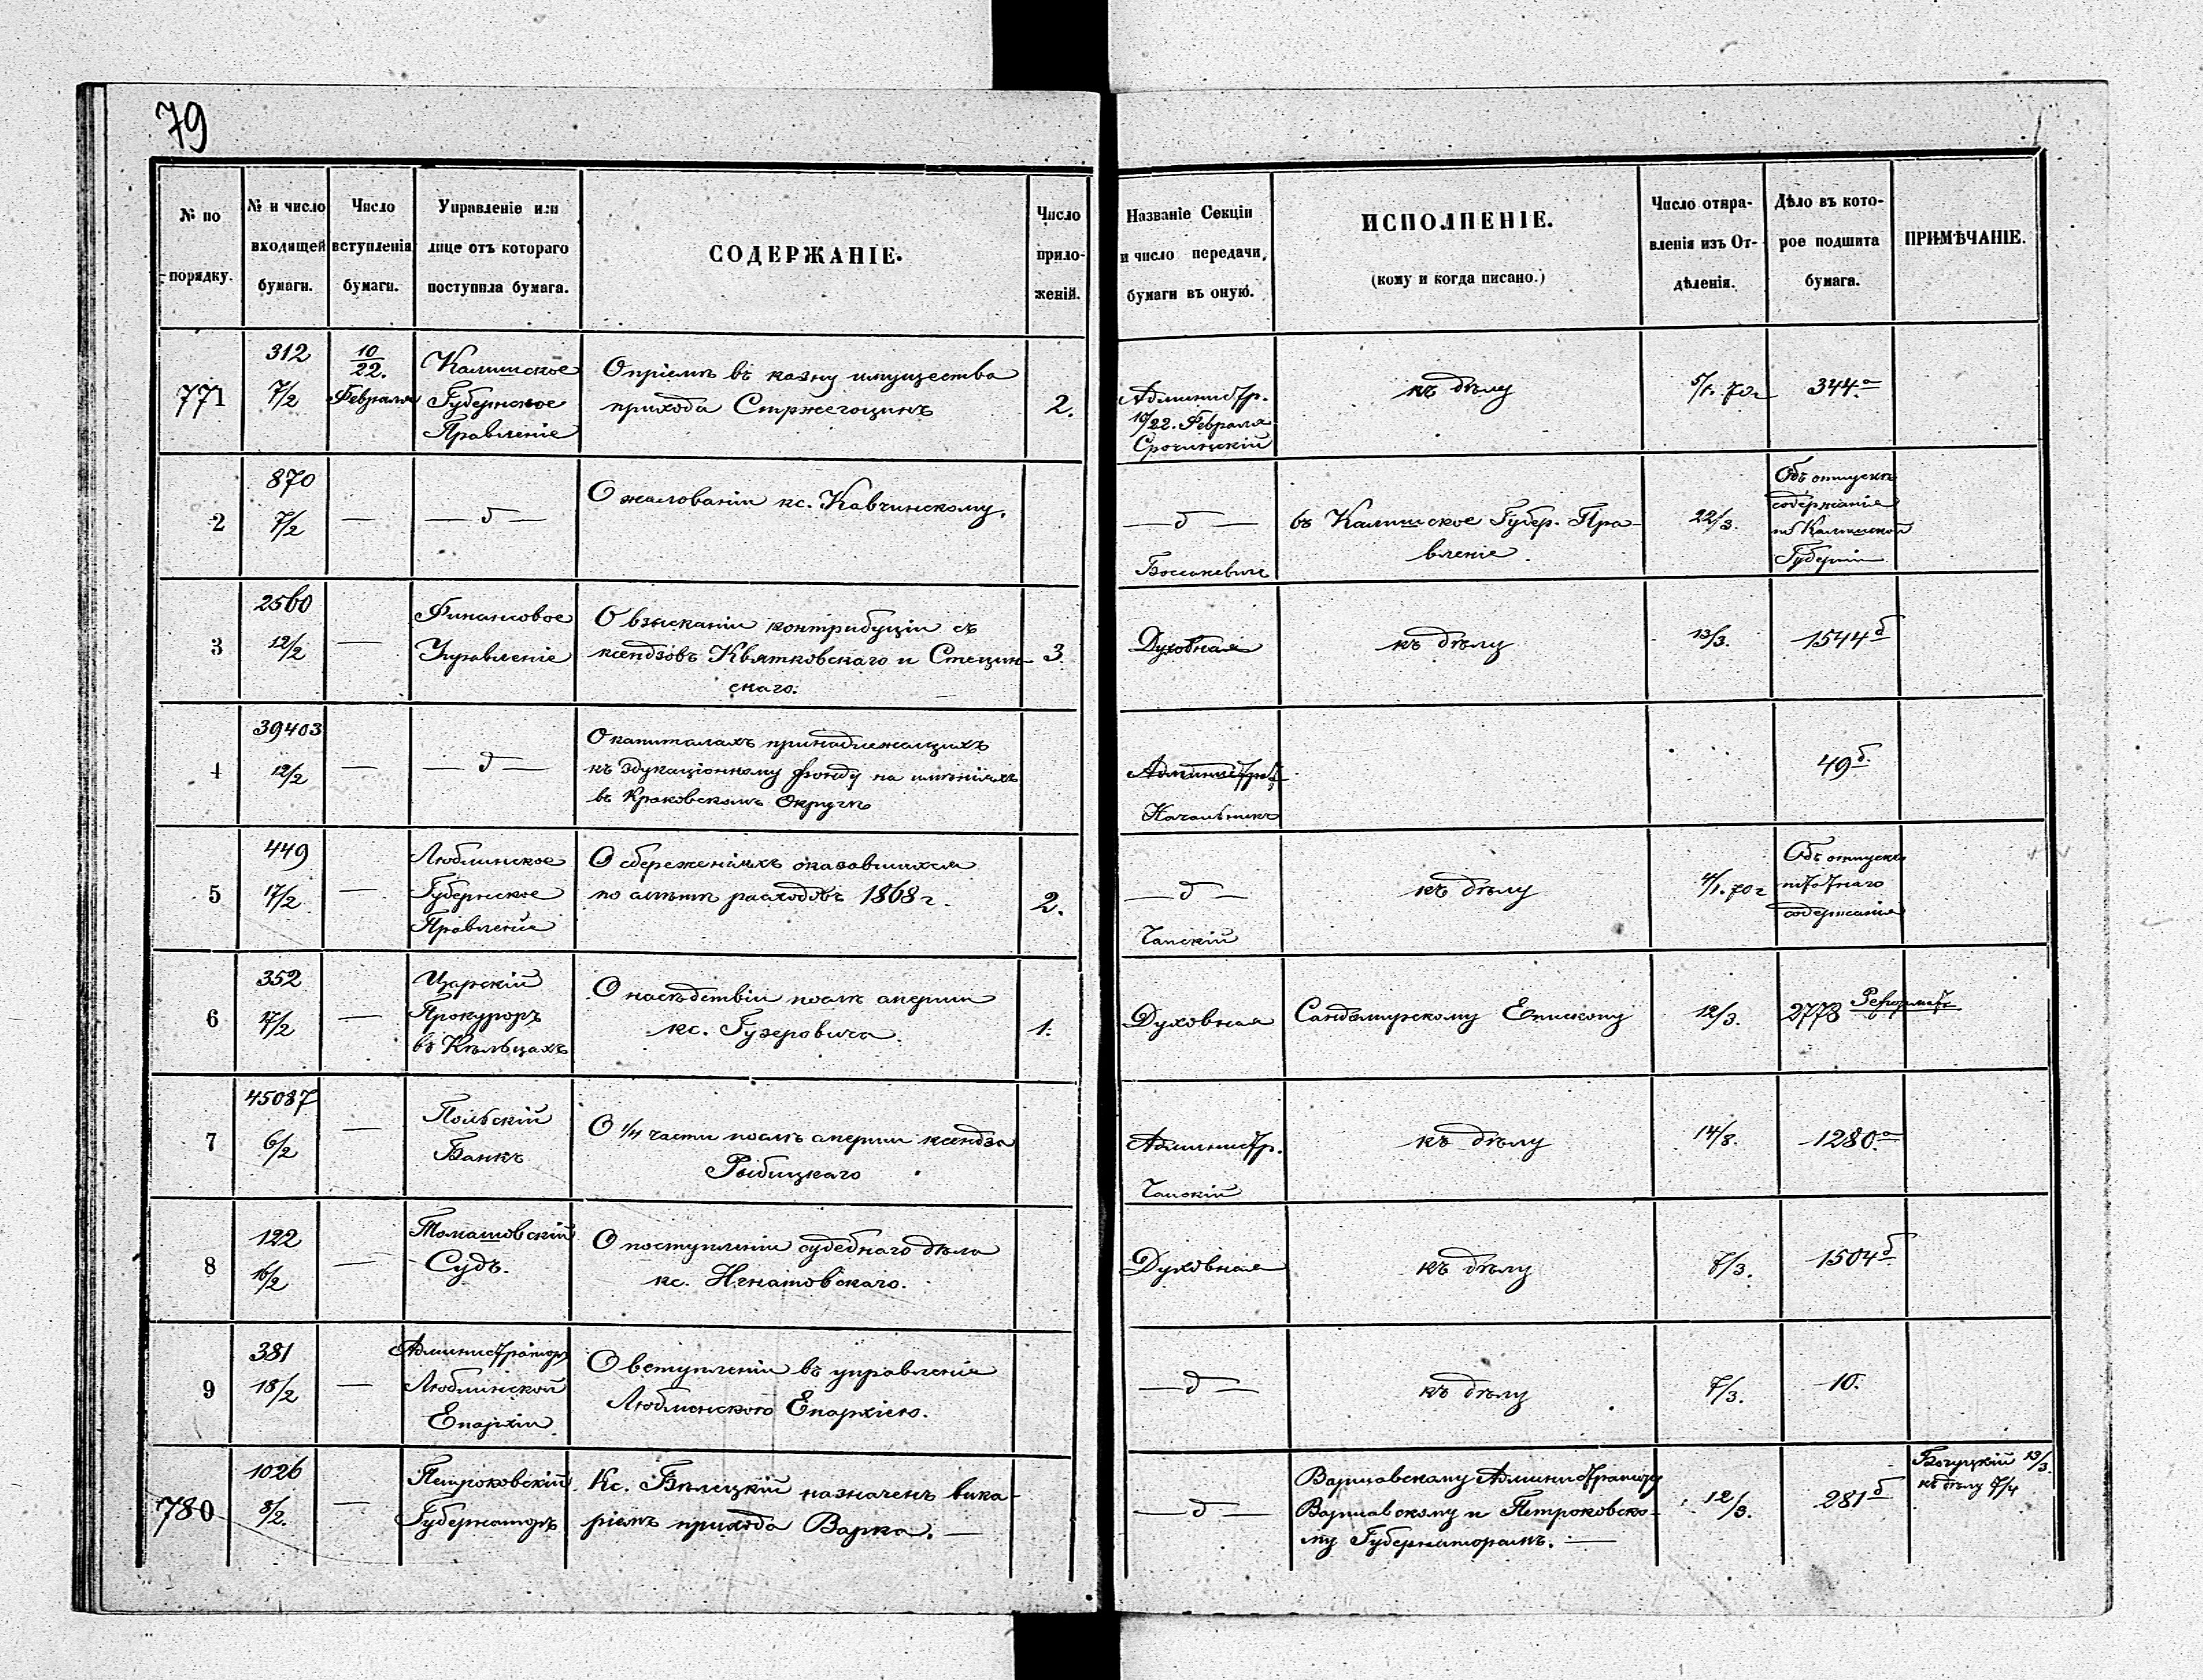 79
№ по порядку.
№ и число входящей бумаги.
Число вступленія бумаги.
Управленіе или лице отъ котораго поступила бумага.
СОДЕРЖАНІЕ.
Число приложеній.
Названіе Секціи и число передачи бумаги въ оную.
ИСПОЛНЕНІЕ.
(кому и когда писано.)
Число отправленія изъ Отдѣленія.
Дѣло въ которое подшита бумага.
ПРИМѢЧАНІЕ.
771
312
7/2
10/22.
Февраля
Калишское
Губернское
Правленіе
О пріемѣ въ казну имущества
прихода Стржегоцинъ
2.
Администр.
10/22. Февраля
Срочинскій
къ дѣлу
5/1. 70 г
344 а
2
870
7/2
—
— д —
О жалованіи кс. Кавчинскому.
— д —
въ Калишское Губер. Пра-
вленіе.
22/3.
Объ отпускѣ
содержанія
по Калишской
Губерніи
3
2560
12/2
—
Финансовое
Управленіе
О взысканіи контрибуціи съ
ксендзовъ Квятковскаго и Стецин-
скаго.
3.
Духовная
къ дѣлу
13/3.
1544 б
4
39403
12/2
—
— д —
О капиталахъ принадлежащихъ
къ эдукаціонному фонду на имѣніяхъ
въ Краковскомъ Округѣ
Администр.
Начальникъ
49 б.
5
449
17/2
—
Люблинское
Губернское
Правленіе
О сбереженіяхъ оказавшихся
по смѣтѣ расходовъ 1868 г.
2.
— д —
Чапскій
къ дѣлу
4/1. 70 г
Объ отпускѣ
штатнаго
содержанія
6
352
17/2
—
Царскій
Прокуроръ
въ Кѣльцахъ
О наслѣдствіи послѣ смерти
кс. Гузеровича.
1.
Духовная
Сандомирскому Епископу
12/3.
2778 Реформат
7
45087
6/2
—
Польскій
Банкъ
О 1/4 части послѣ смерти ксендза
Рыбицкаго
Администр.
Чапскій
къ дѣлу
14/8.
1280. а
8
122
16/2
—
Томашовскій
Судъ.
О поступленіи судебнаго дѣла
кс. Игнатовскаго.
Духовная
къ дѣлу
7/3.
1504 б
9
381
18/2
—
Администраторъ
Люблинской
Епархіи.
О вступленіи въ управленіе
Люблинскою Епархіею.
— д —
къ дѣлу
7/3.
10.
780
1026
8/2.
—
Петроковскій
Губернаторъ
Кс. Бѣлецкій назначенъ вика-
ріемъ прихода Варка. —
— д —
Варшавскому Администратору
Варшавскому и Петроковско-
му Губернаторамъ. —
12/3.
281 б
Богуцкій 13/3.
къ дѣлу 7/4